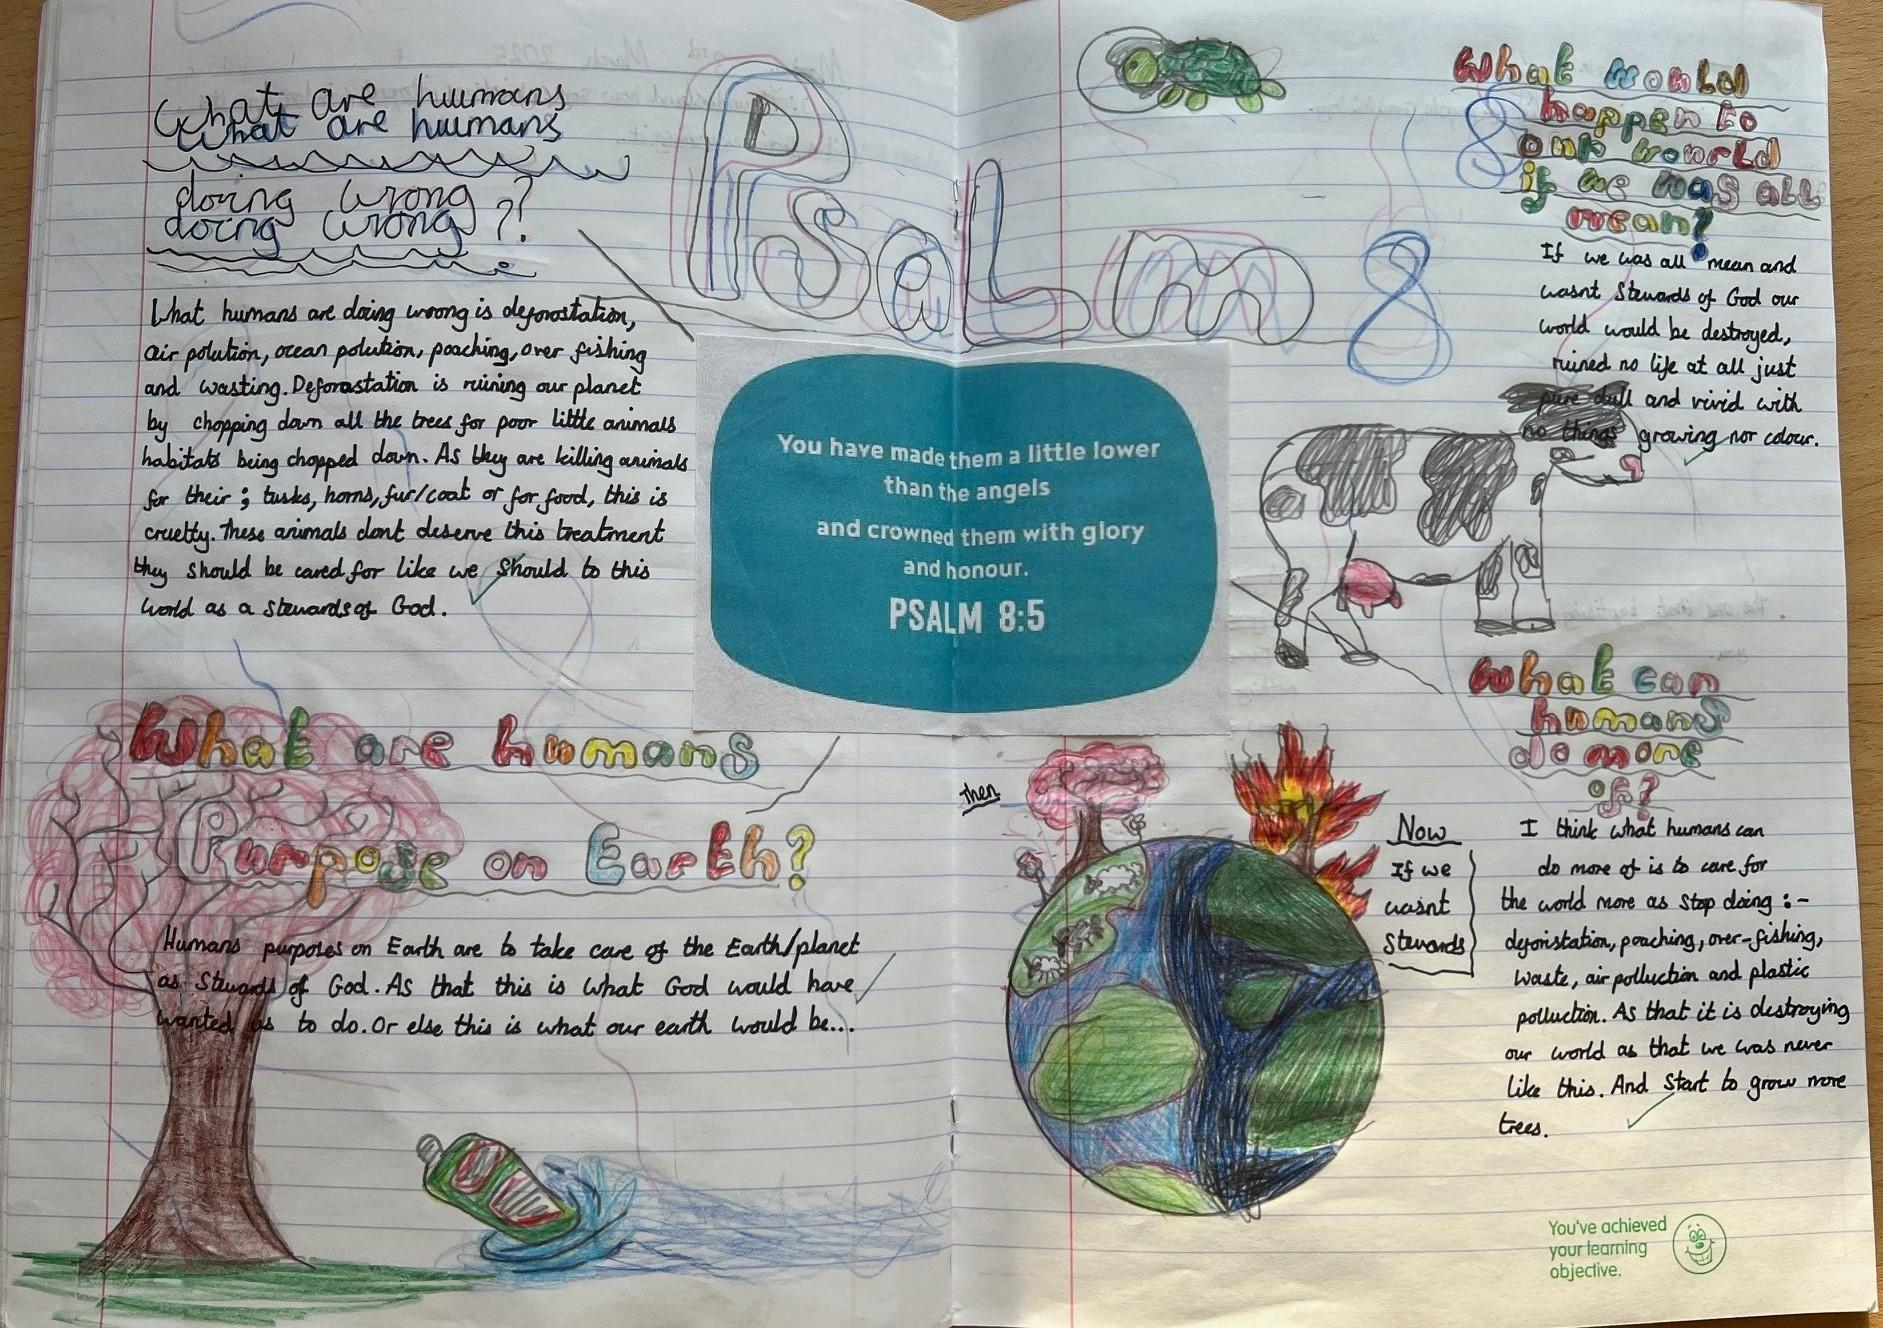 What are humans
What are humans
doing wrong ?
doing wrong ?.
What humans are doing wrong is deforostation,
air polution, ocean polution, poaching, over fishing
and wasting. Deforastation is ruining our planet
by chopping down all the trees for poor little animals
habitats being chopped down. As they are killing animals
for their ; tusks, horns, fur/coat or for food, this is
cruelty. These animals dont deserve this treatment
they should be cared for like we should to this
world as a stewards of God.
What are humans
Purpose on Earth?
Humans purposes on Earth are to take care of the Earth/planet
as Stewards of God. As that this is what God would have
wanted us to do. Or else this is what our earth would be...
Psalm 8
You have made them a little lower
than the angels
and crowned them with glory
and honour.
PSALM 8:5
What would
happen to
our world
if we was all
mean?
If we was all mean and
wasnt Stewards of God our
world would be destroyed,
ruined no life at all just
pure dull and vivid with
no things growing nor colour.
then
Now
If we
wasnt
Stewards
What can
humans
do more
of?
I think what humans can
do more of is to care for
the world more as stop doing :-
deforistation, poaching, over-fishing,
waste, air polluction and plastic
polluction. As that it is destroying
our world as that we was never
like this. And start to grow more
trees.
You've achieved
your learning
objective.